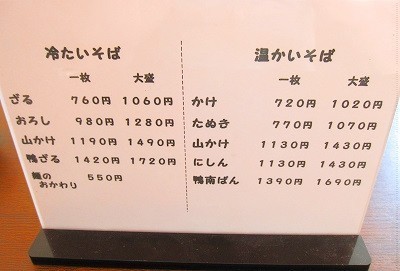 冷たいそば
一枚 大盛
ざる 760円 1060円
おろし 980円 1280円
山かけ 1190円 1490円
鴨ざる 1420円 1720円
麺の
おかわり 550円
温かいそば
一枚 大盛
かけ 720円 1020円
たぬき 770円 1070円
山かけ 1130円 1430円
にしん 1130円 1430円
鴨南ばん 1390円 1690円